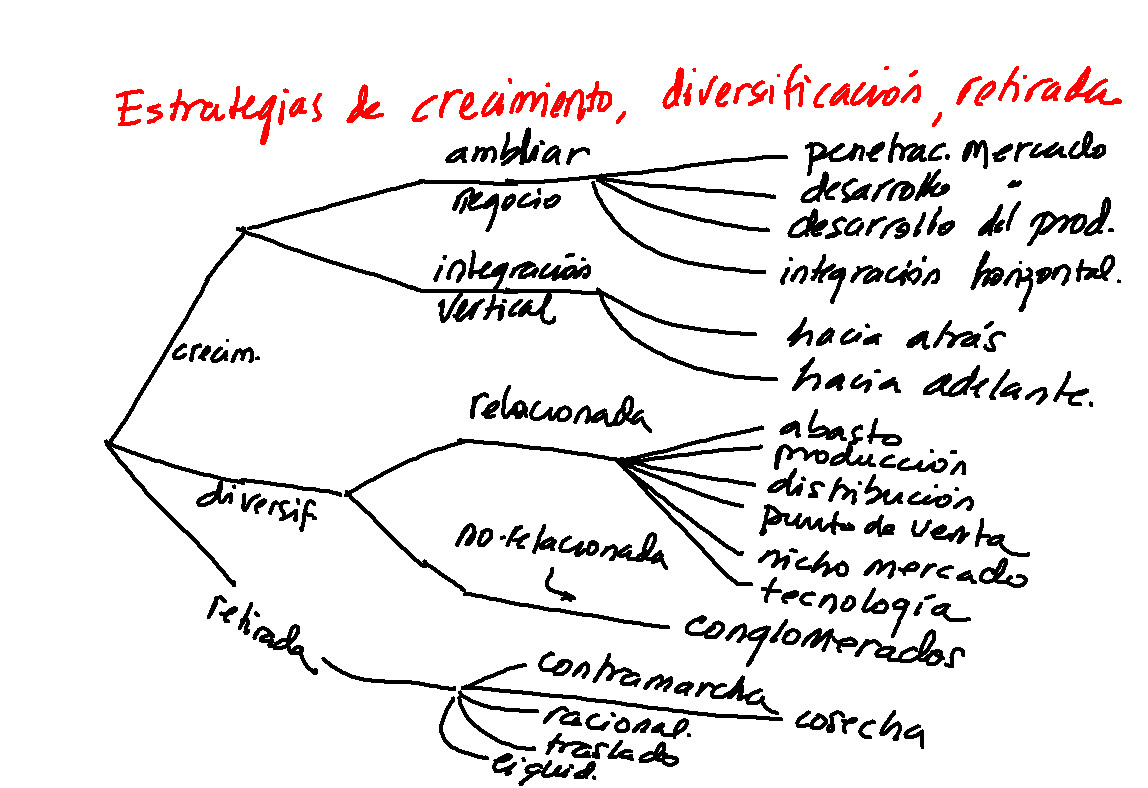 Estrategias de crecimiento, diversificación, retirada
ambliar
negocio
penetrac. mercado
desarrollo "
desarrollo del prod.
integración horizontal.
integración
vertical
hacia atrás
hacia adelante.
crecim.
relacionada
abasto
producción
distribución
punto de venta
nicho mercado
tecnología
diversif.
no-relacionada
conglomerados
retirada
contramarcha
cosecha
racional.
traslado
liquid.